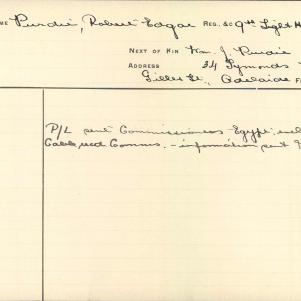 ME Purdie, Robert Edgar REG. &c 9th Light H
NEXT OF KIN Wm. J. Purdie
ADDRESS 34 Symonds
Gilles St., Adelaide F
P/L sent Commissioners Egypt:
Cable, recd Commrs. - information sent